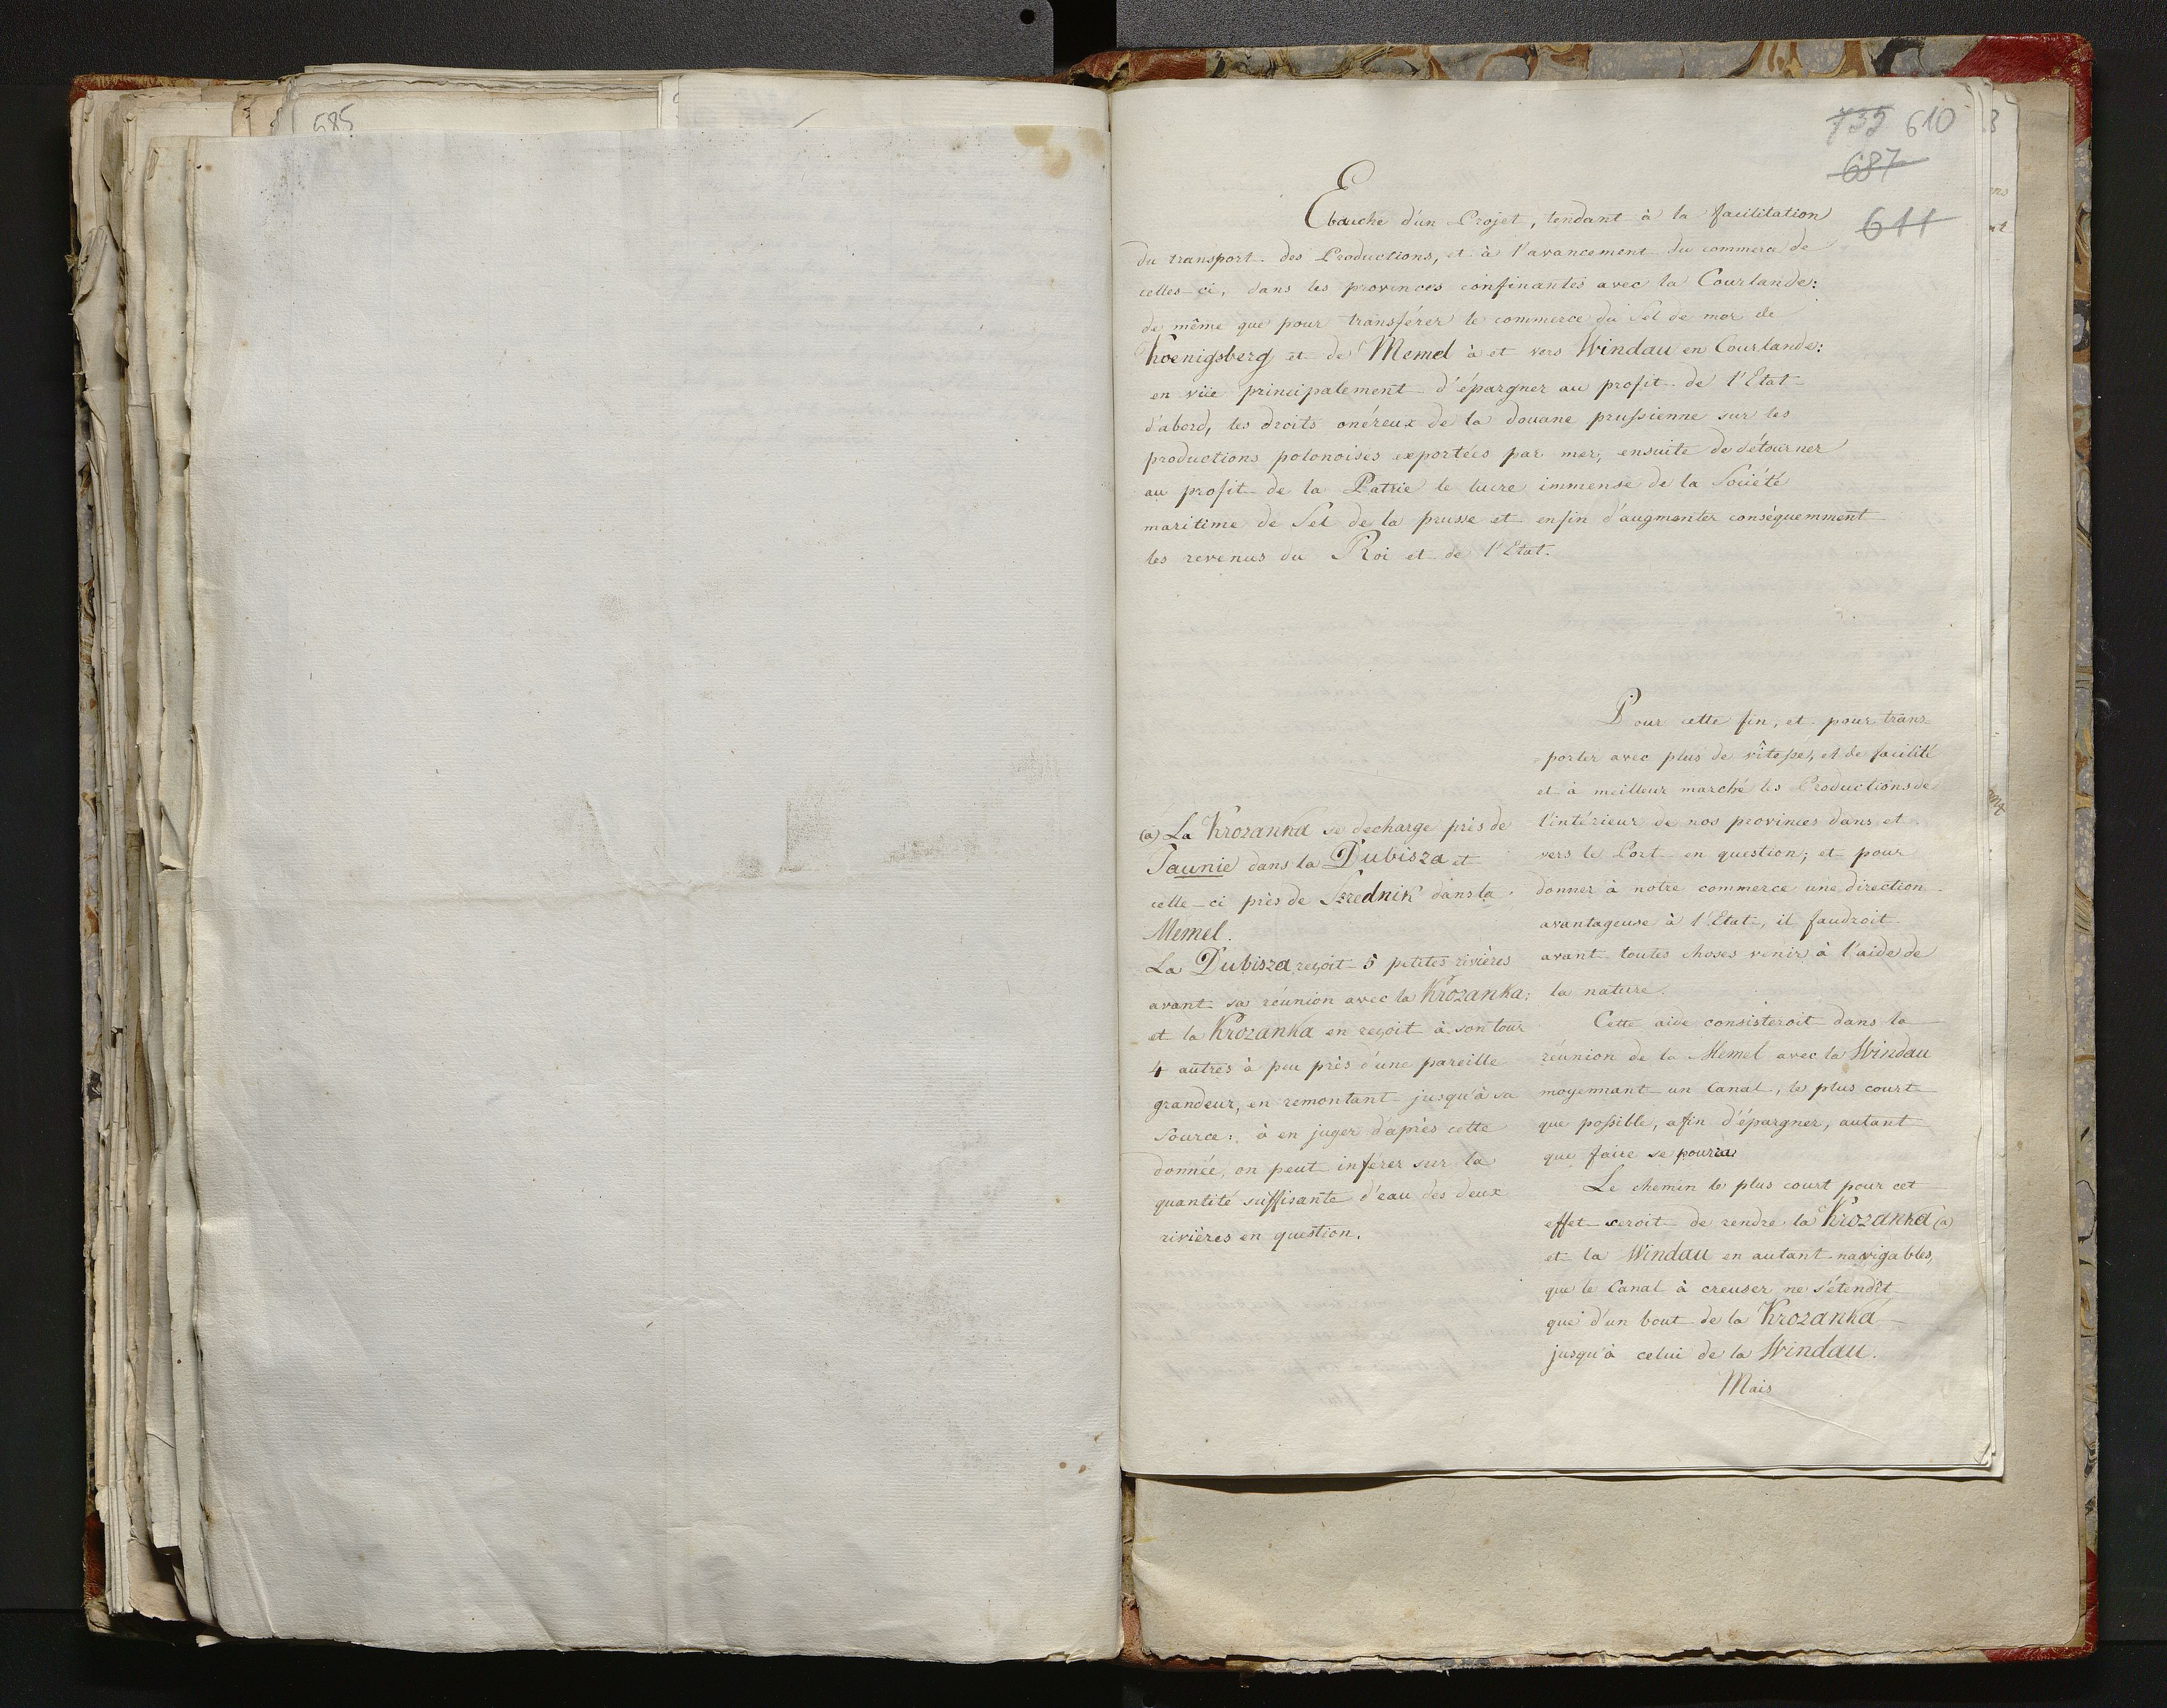 585
735 610
687
611
Ebauche d'un Projet, tendant à la facilitation
du transport des Productions, et à l'avancement du commerce de
celles-ci, dans les provinces confinantes avec la Courlande:
de même que pour transférer le commerce du Sel de mer de
Koenigsberg et de Memel à et vers Windau en Courlande:
en vüe principalement d'épargner au profit de l'Etat
d'abord, les droits onéreux de la douane prussienne sur les
productions polonoises exportées par mer, ensuite de détourner
au profit de la Patrie le lucre immense de la Société
maritime de Sel de la prusse et enfin d'augmenter conséquemment
les revenus du Roi et de l'Etat.
Pour cette fin, et pour trans-
-porter avec plus de vîtesse, et de facilité
et à meilleur marché les Productions de
l'intérieur de nos provinces dans et
vers le Port en question; et pour
donner à notre commerce une direction
avantageuse à l'Etat, il faudroit
avant toutes choses venir à l'aide de
la nature.
Cette aide consisteroit dans la
réunion de la Memel avec la Windau
moyennant un Canal, le plus court
que possible, afin d'épargner, autant
que faire se poura
Le chemin le plus court pour cet
effet seroit de rendre la Krozanka (a)
et la Windau en autant navigables,
que le Canal à creuser ne s'étendît
que d'un bout de la Krozanka
jusqu'à celui de la Windau.
Mais
(a) La Krozanka se decharge près de
Taunie dans la Dubisza et
celle-ci près de Srednik dans la
Memel.
La Dubisza reçoit 5 petites rivières
avant sa réunion avec la Krozanka;
et la Krozanka en reçoit à son tour
4 autres à peu près d'une pareille
grandeur, en remontant jusqu'à sa
source: à en juger d'après cette
donnée, on peut inférer sur la
quantité suffisante d'eau des deux
rivières en question.